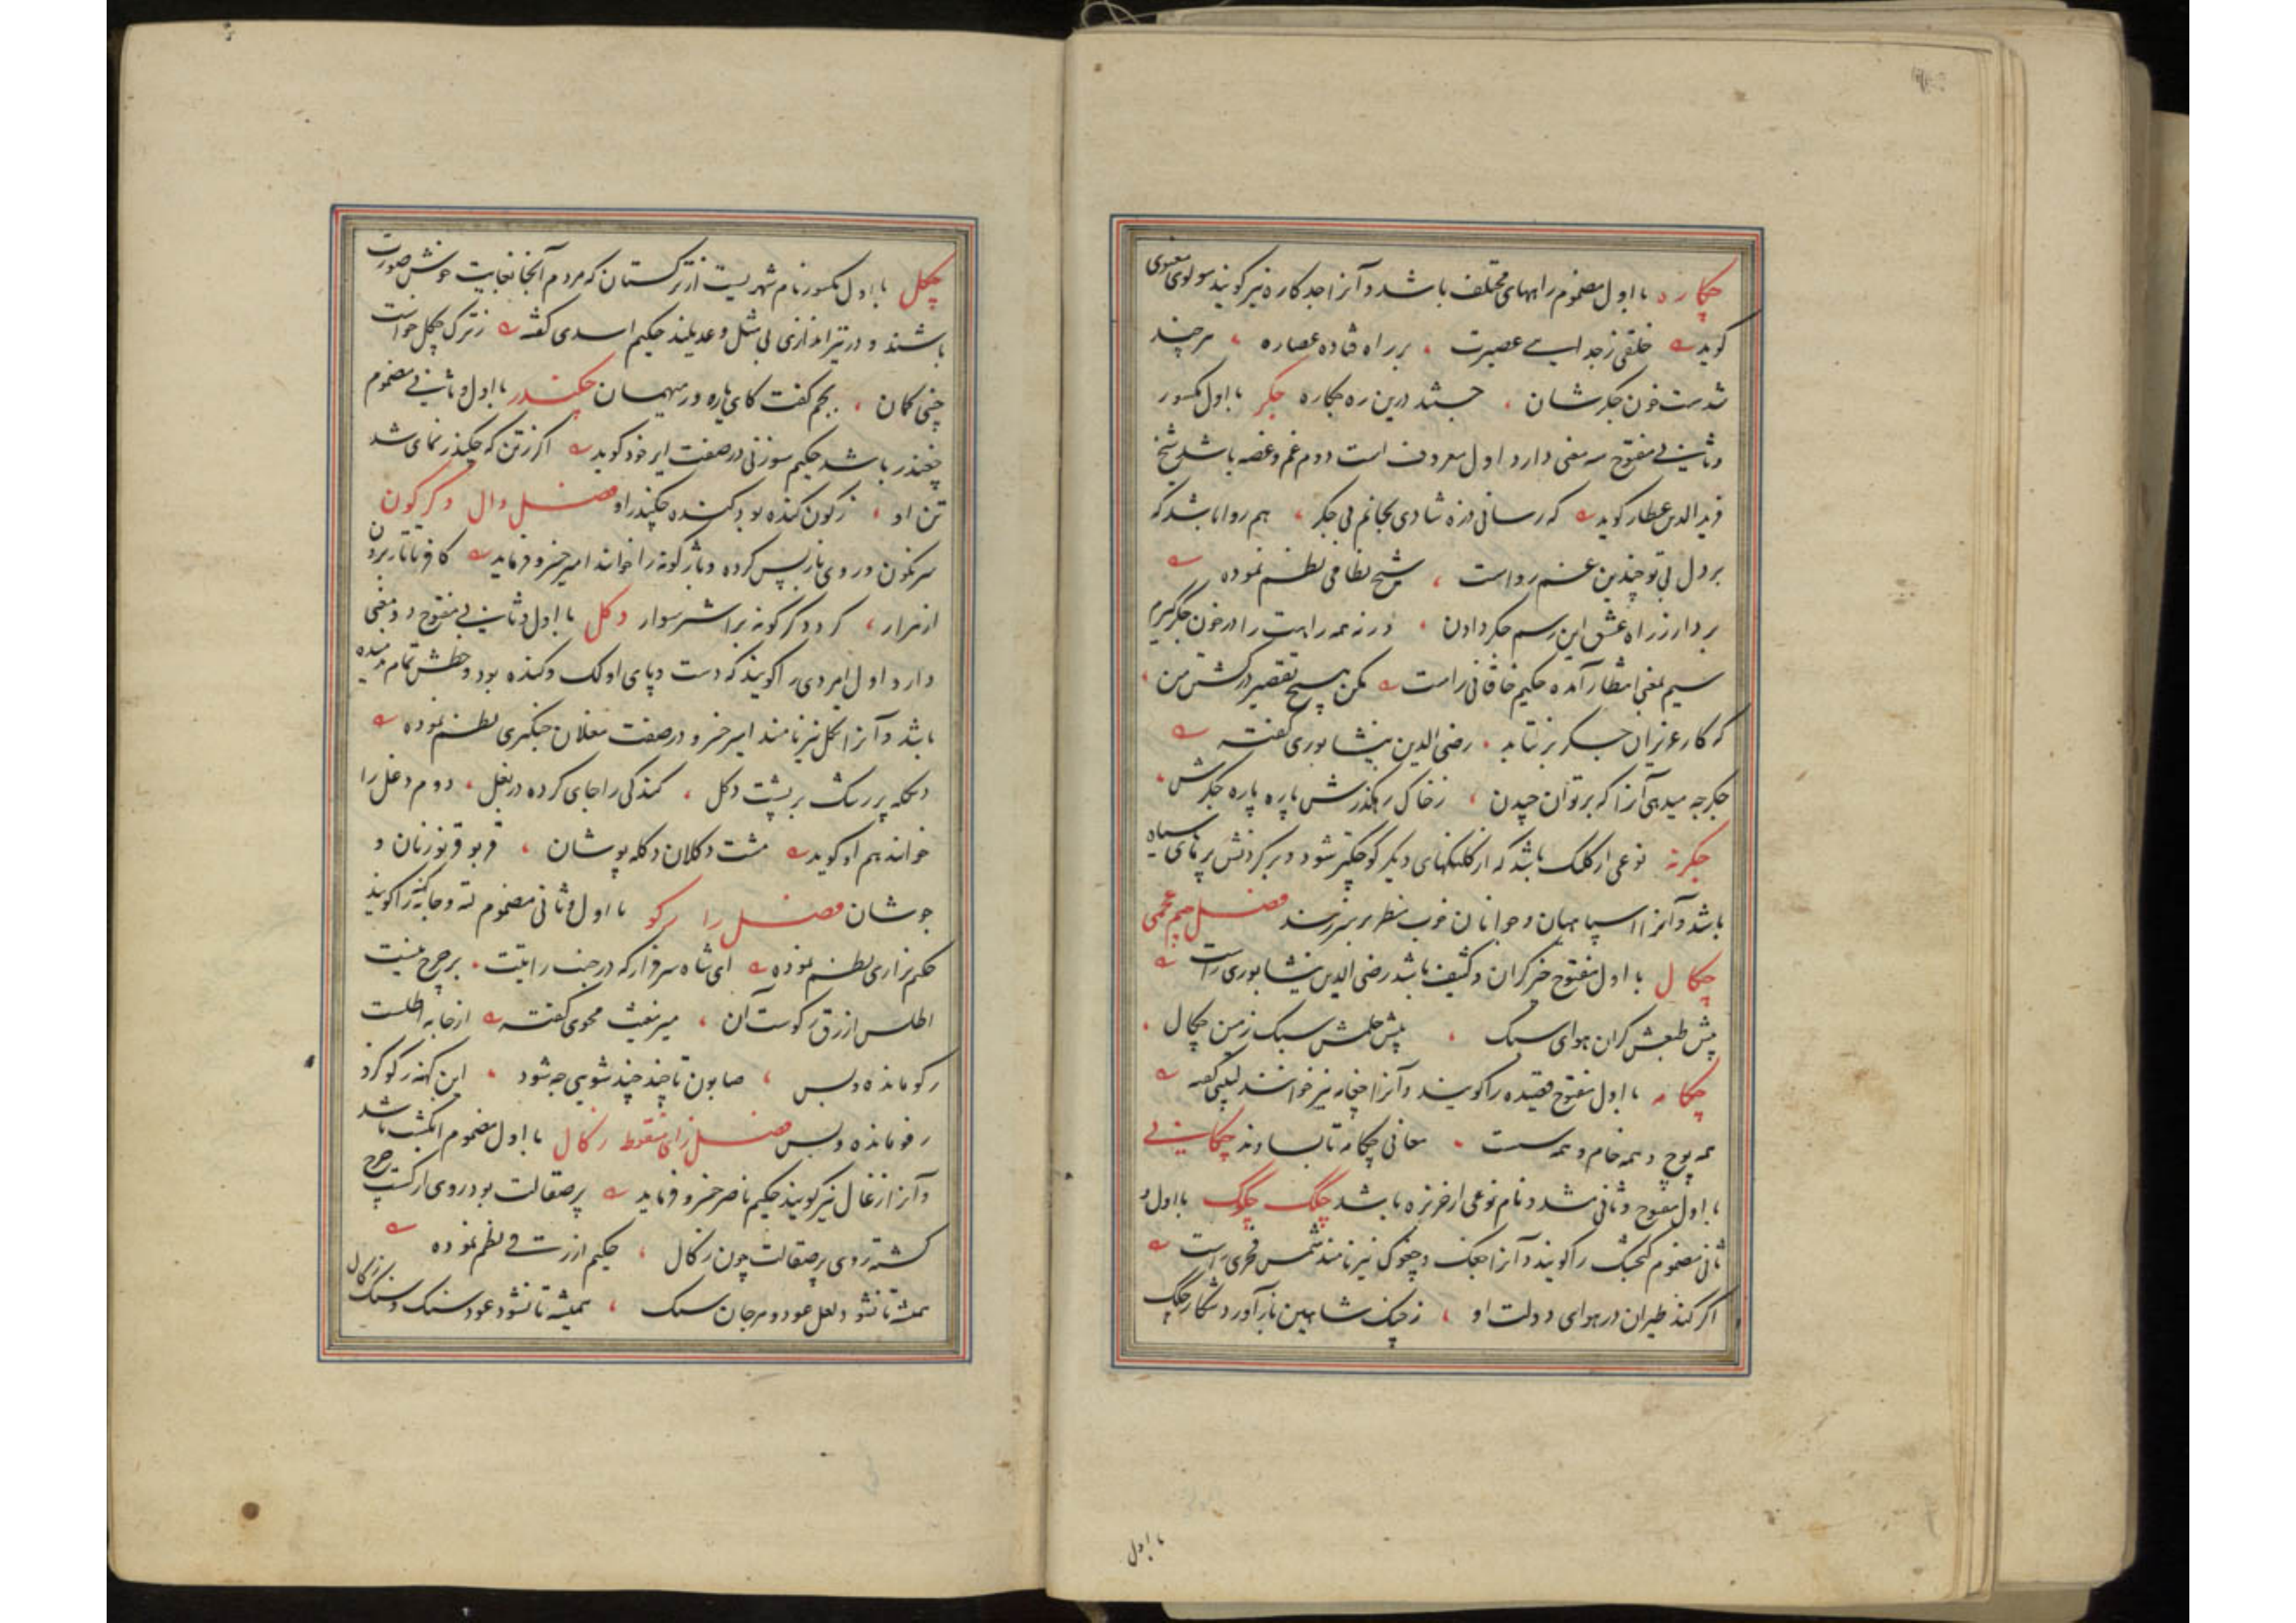 جکاره با اول مضموم راههای مختلف باشد و آنرا جدکاره نیز گویند مولوی معنوی
گوید خلقی ز جد ایسے عصیرت ، بر راه فتاده عصاره ، هر چند
شدست خون جکرشان ، جستند درین ره جکاره جکر با اول مکسور
و ثانیے مفتوح سه معنی دارد اول معروف است دوم غم و غصه باشد شیخ
فرید الدین عطار گوید که رسانی ذره شادی بجانم بی جکر ، هم روا باشد که
بر دل بی تو چندین غم رواست ، شیخ نظامی نظم نموده
بردار ز راه عشق این رسم جکر دادن ، ورنه همه راهت را در خون جکر گیرم
سیم بمعنی انتظار آمده حکیم خاقانی راست مکن هیچ تقصیر در کشتن من ،
که کار عزیزان جکر بر نتابد ، رضی الدین نیشابوری گفته
جکر چه میدهی آنرا که بر توان چیدن ، ز خاک رهگذرش پاره پاره جکرش ،
جکرنه نوعی از کلنک باشد که از کلنکهای دیگر کوچکتر شود و بر گردنش پرهای سیاه
باشد و آنرا سپاهیان و جوانان خوب بنظر بر سر زنند فصل جیم عجمی
چکال با اول مفتوح خر گران و کثیف باشد رضی الدین نیشابوری راست
پیش طبعش گران هوای سبک ، پیش حلمش سبک زمین چکال ،
چکامه با اول مفتوح قصیده را گویند و آنرا چخامه نیز خوانند لبیبی گفته
همه پوچ و همه خام و همه سست ، معانی چکامه تا بساوند چکانے
با اول مفتوح و ثانی مشدد نام نوعی از خربزه باشد چکک چکوک با اول و
ثانی مضموم گنجشک را گویند و آنرا چغک و چغوک نیز نامند شمس فخری راست
اگر کند طیران در هوای دولت او ، ز چنک شاهین باز آورد شکار چکک
با اول
چکل با اول مکسور نام شهریست از ترکستان که مردم آنجا بغایت خوش صورت
باشند و در تیراندازی بی مثل و عدیلند حکیم اسدی گفته ز ترک چکل خواست
چینی کمان ، بجم گفت کای باره در میهمان چکندر با اول و ثانیے مضموم
چغندر باشد حکیم سوزنی در صفت ایر خود گوید اگر ز تن که چکندر نمای شد
تن او ، ز کون کنده بود کننده چکندر او فصل دال دکرکون
سرنکون و روی باز پس کرده و باژکونه را خوانند امیر خسرو فرماید کافر تاتار برون
از هزار ، کرد دکرکونه بر اشتر سوار دکل با اول و ثانیے مفتوح دو معنی
دارد اول امردی را گویند که دست و پای او لک و کنده بود و خطش تمام دمیده
باشد و آنرا نکل نیز نامند امیر خسرو در صفت مغلان چنکیزی نظم نموده
دکله پر ریک بر پشت دکل ، کندکی را جای کرده در بغل ، دوم دغل را
خوانند هم او گوید مشت دکلان دکله پوشان ، قربو قربو زنان و
جوشان فصل را رکو با اول و ثانی مضموم لته و جامه کهنه را گویند
حکیم نزاری نظم نموده ای شاه سرفراز که در جنب رایتت ، بر چرخ نیست
اطلس ازرق رکوست آن ، میر مغیث محوی گفته از خانه اطلست
رکو مانده و بس ، صابون تا چند چند شویی چه شود ، این کهنه رکو کز و
رفو مانده و بس فصل زای منقوطه زکال با اول مضموم انکشت باشد
و آنرا زغال نیز گویند حکیم ناصر خسرو فرماید پر صقالت بود روی از گشت چرخ
گشته روی پر صقالت چون زکال ، حکیم ازرقے نظم نموده
همیشه تا نشود لعل عود و مرجان سنک ، همیشه تا نشود عود سنک و سنک زکال